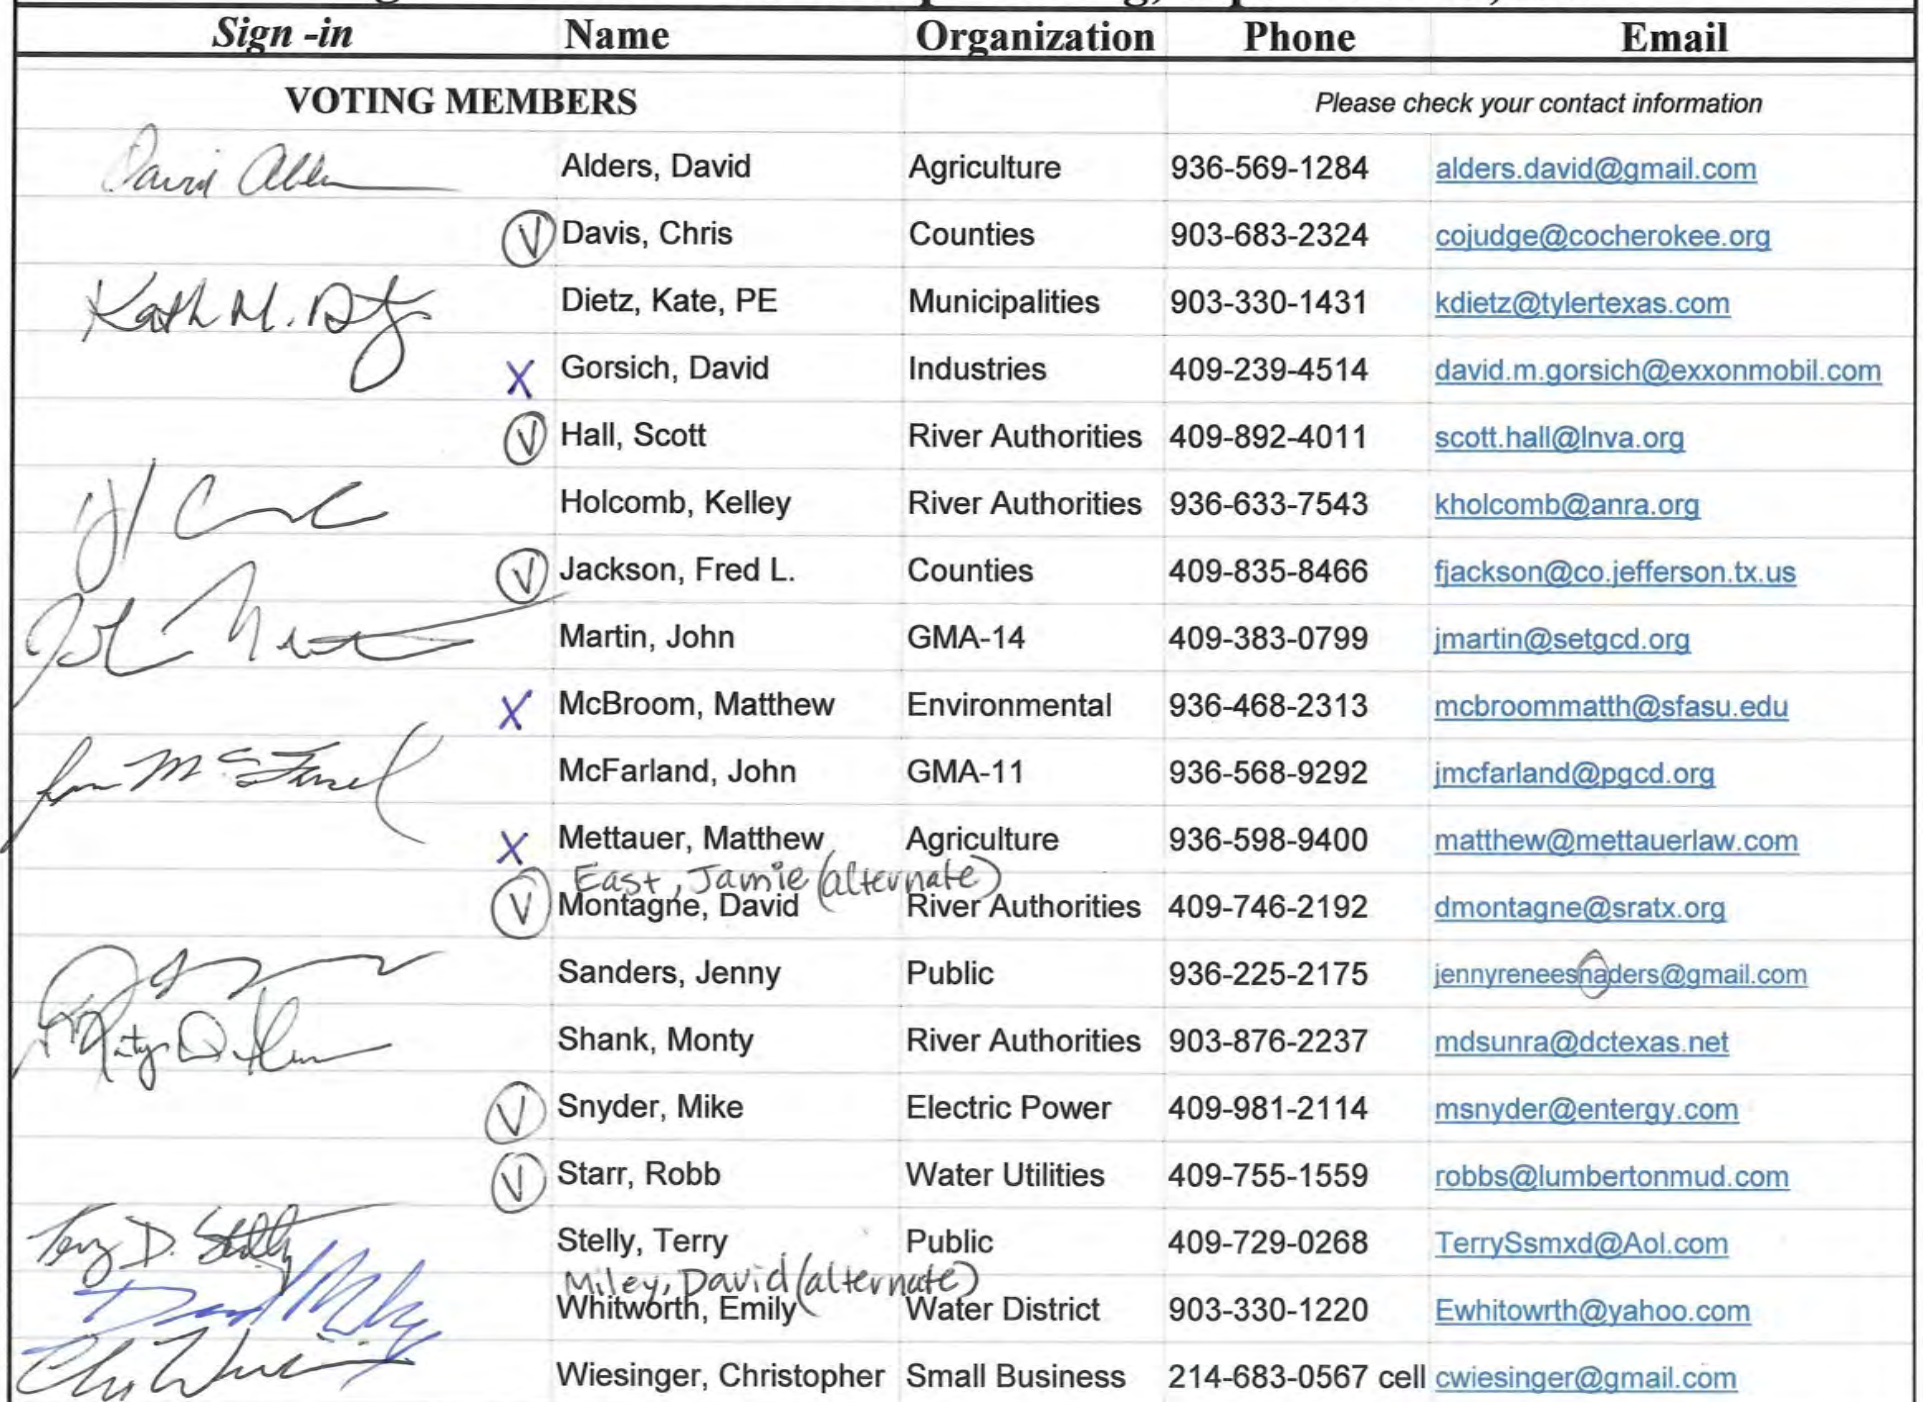 Sign -in Name Organization Phone Email
VOTING MEMBERS Please check your contact information
David Alders, David Agriculture 936-569-1284 alders.david@gmail.com
V Davis, Chris Counties 903-683-2324 cojudge@cocherokee.org
M. Dietz, Kate, PE Municipalities 903-330-1431 kdietz@tylertexas.com
X Gorsich, David Industries 409-239-4514 david.m.gorsich@exxonmobil.com
V Hall, Scott River Authorities 409-892-4011 scott.hall@lnva.org
Holcomb, Kelley River Authorities 936-633-7543 kholcomb@anra.org
V Jackson, Fred L. Counties 409-835-8466 fjackson@co.jefferson.tx.us
Martin, John GMA-14 409-383-0799 jmartin@setgcd.org
X McBroom, Matthew Environmental 936-468-2313 mcbroommatth@sfasu.edu
McFarland, John GMA-11 936-568-9292 jmcfarland@pgcd.org
X Mettauer, Matthew Agriculture 936-598-9400 matthew@mettauerlaw.com
East, Jamie (alternate)
V Montagne, David River Authorities 409-746-2192 dmontagne@sratx.org
Sanders, Jenny Public 936-225-2175 jennyreneesnaders@gmail.com
Shank, Monty River Authorities 903-876-2237 mdsunra@dctexas.net
V Snyder, Mike Electric Power 409-981-2114 msnyder@entergy.com
V Starr, Robb Water Utilities 409-755-1559 robbs@lumbertonmud.com
Terry D. Stelly Stelly, Terry Public 409-729-0268 TerrySsmxd@Aol.com
Miley, David (alternate)
David Miley Whitworth, Emily Water District 903-330-1220 Ewhitowrth@yahoo.com
Wiesinger, Christopher Small Business 214-683-0567 cell cwiesinger@gmail.com